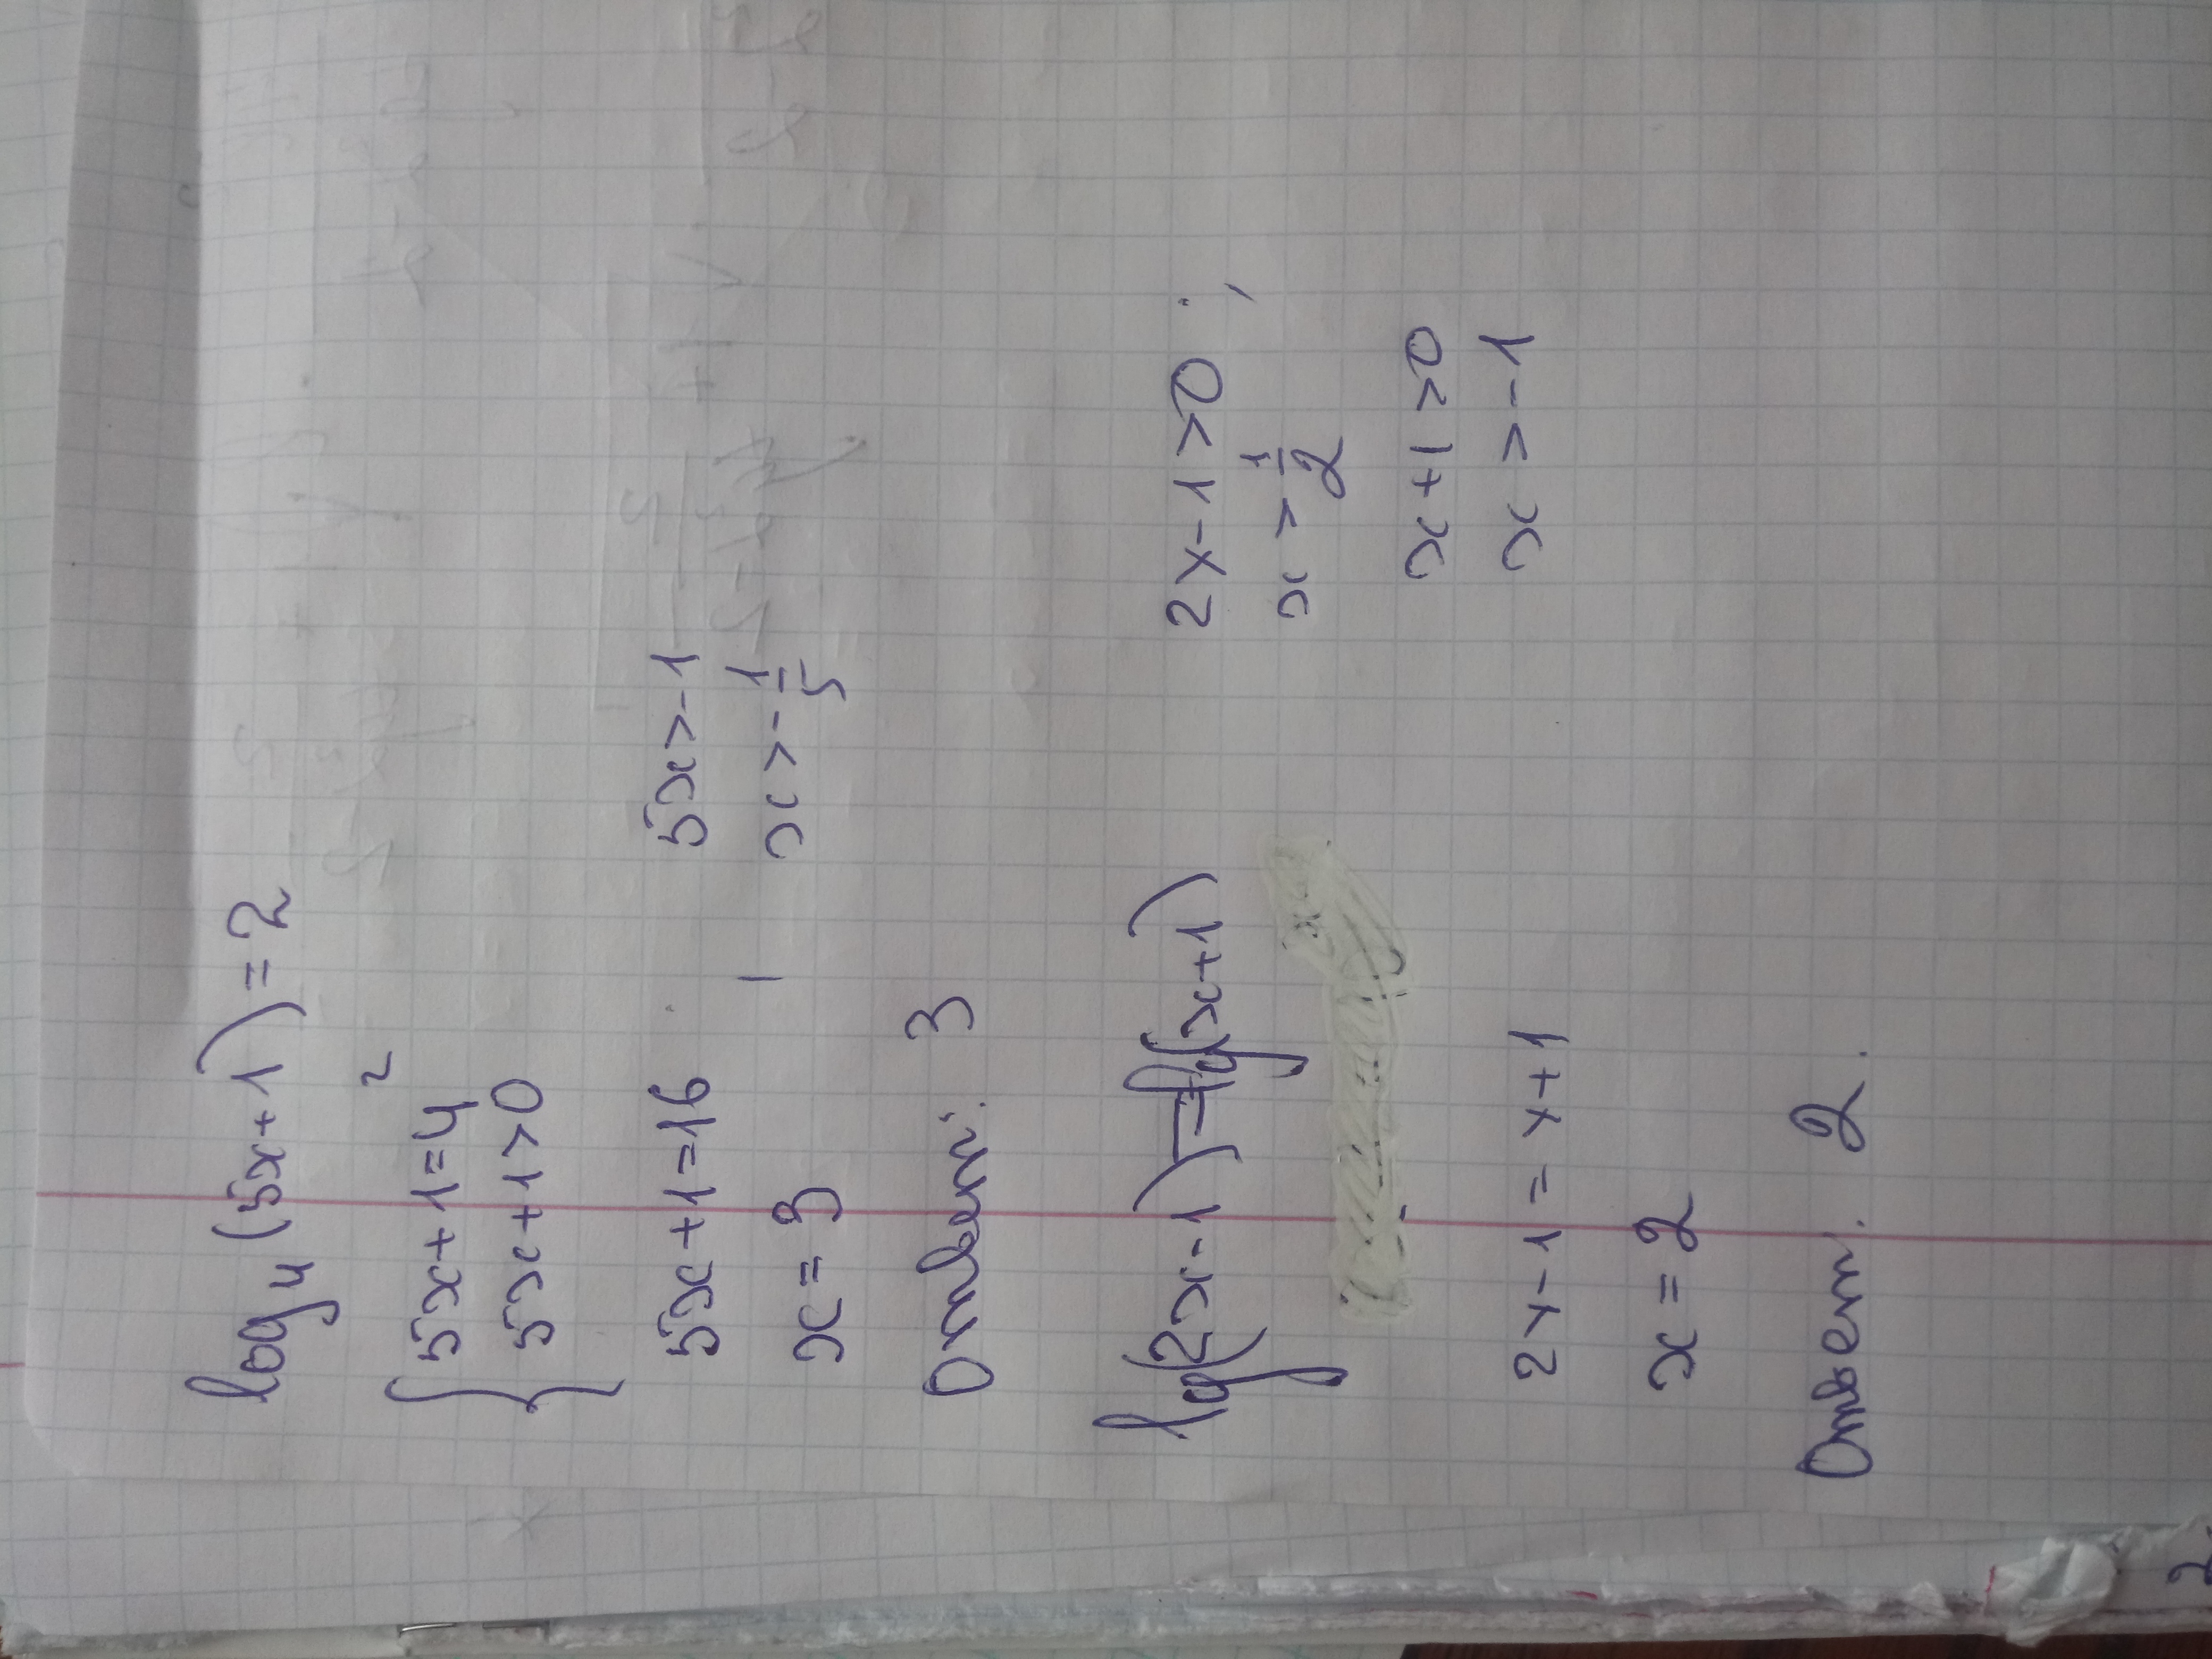 log₄(5x+1)=2
{5x+1=4²
5x+1>0
5x+1=16
x=3
5x>-1
x>-1/5
Ответ: 3
lg(2x-1)=lg(x+1)
2x-1>0;
x>1/2
x+1>0
x>-1
2x-1=x+1
x=2
Ответ. 2.